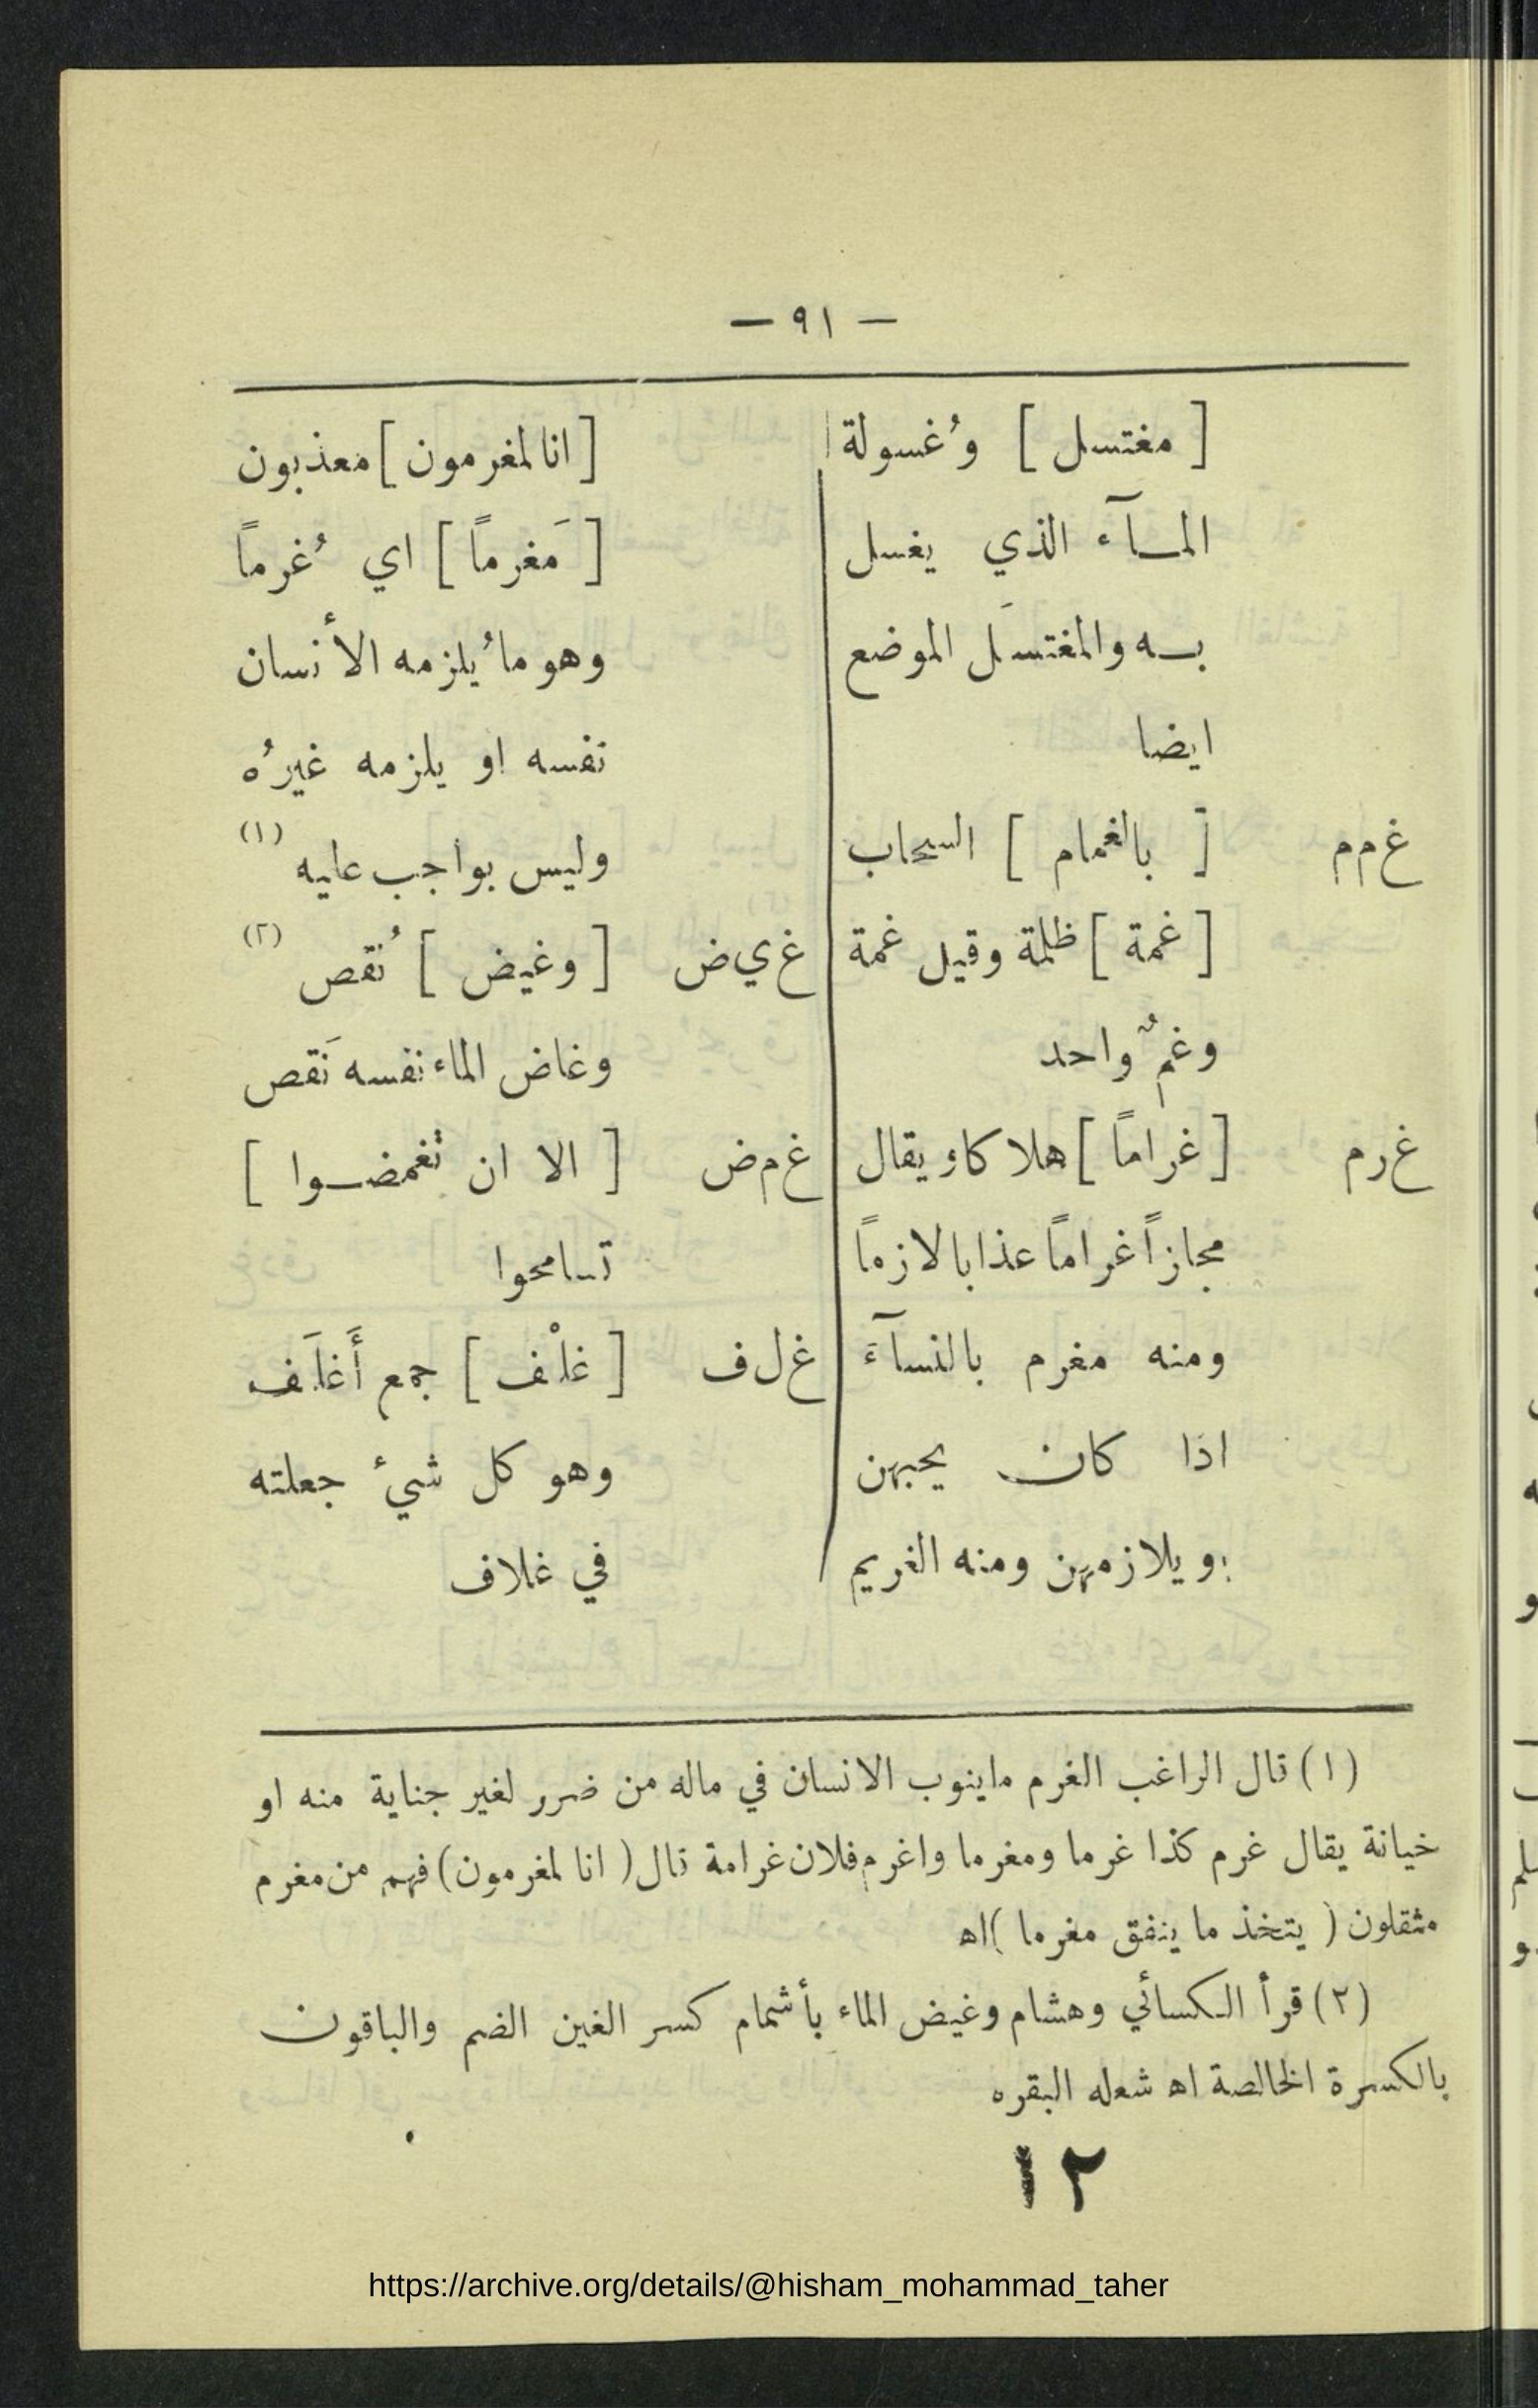 — ٩١ —
[ مغتسل ] وُغسولة
المـآء الذي يغسل
بـه والمغتسَل الموضع
ايضا
غ م م [ بالغمام ] السحاب
[ غمة ] ظلمة وقيل غمة
وغمٌ واحد
غ ر م [ غراماً ] هلاكا ويقال
مجازاً غراماً عذابا لازماً
ومنه مغرم بالنسآء
اذا كان يحبهن
ويلازمهن ومنه الغريم
[ انا لمغرمون ] معذبون
[ مَغرماً ] اي ُغرماً
وهو ما ُيلزمه الأنسان
نفسه او يلزمه غيرُه
وليس بواجب عليه (١)
غ ي ض [ وغيض ] ُنقص (٢)
وغاض الماء نفسه نَقص
غ م ض [ الا ان تغمضـوا ]
تسامحوا
غ ل ف [ غلْف ] جمع أَغلَف
وهو كل شيءٔ جعلته
في غلاف
(١) قال الراغب الغرم ماينوب الانسان في ماله من ضرر لغير جناية منه او
خيانة يقال غرم كذا غرما ومغرما واغرم فلان غرامة قال ( انا لمغرمون ) فهم من مغرم
مثقلون ( يتخذ ما ينفق مغرما ) اه
(٢) قرأ الكسائي وهشام وغيض الماء بأشمام كسر الغين الضم والباقون
بالكسرة الخالصة اه شعله البقره
١٢
https://archive.org/details/@hisham_mohammad_taher